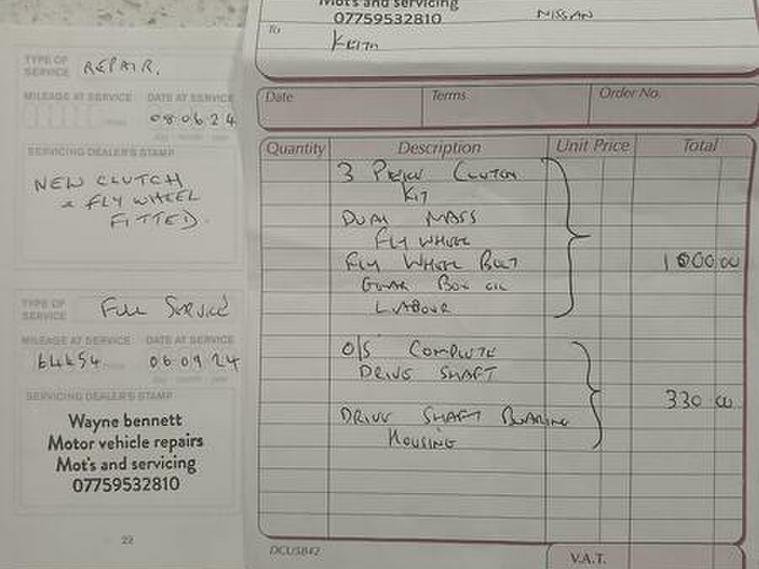 TYPE OF SERVICE REPAIR.
MILEAGE AT SERVICE DATE AT SERVICE
08 06 24
SERVICING DEALER'S STAMP
NEW CLUTCH
& FLY WHEEL
FITTED.
TYPE OF SERVICE Full Service
MILEAGE AT SERVICE DATE AT SERVICE
64454 06 09 24
SERVICING DEALER'S STAMP
Wayne bennett
Motor vehicle repairs
Mot's and servicing
07759532810
22
Mot's and servicing
07759532810 NISSAN
To Keith
Date Terms Order No.
Quantity Description Unit Price Total
3 Piece Clutch
Kit
Dual Mass
Fly Wheel
Fly Wheel Bolt 1000.00
Gear Box oil
Labour
O/S Complete
Drive Shaft
330.00
Drive Shaft Bearing
Housing
DCUSB42
V.A.T.